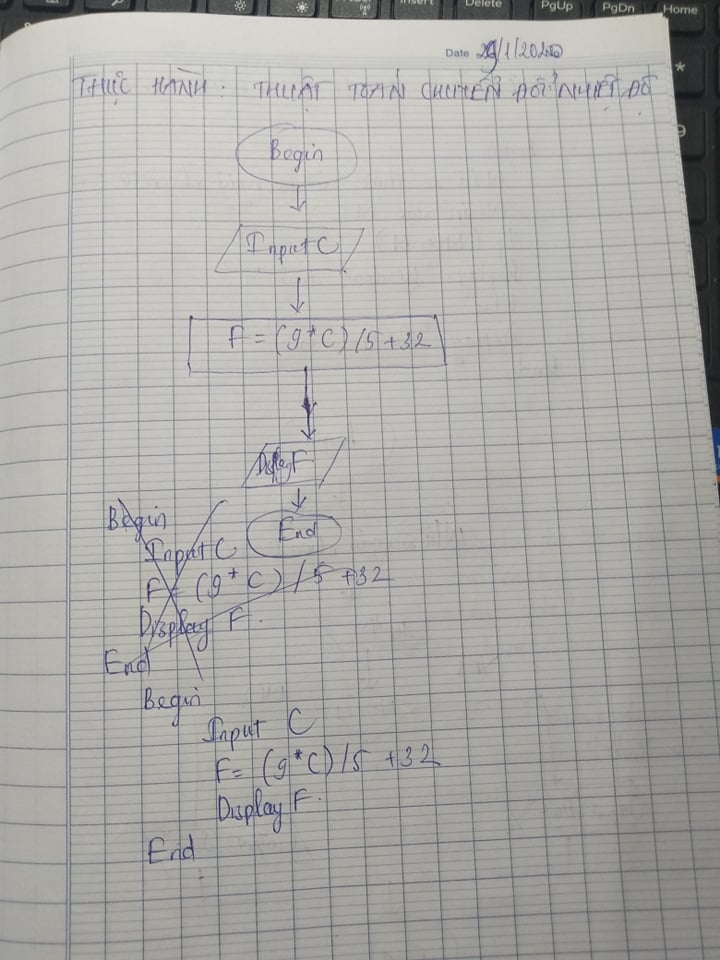 Insert
Delete
PgUp
PgDn
Home
Date
THỰC HÀNH: THUẬT TOÁN CHUYỂN ĐỔI NHIỆT ĐỘ
Begin
Input C
F = (9*C) / 5 + 32
Display F
End
Begin
Input C
F = (9* C) / 5 + 32
Display F.
End
Begin
Input C
F = (9*C) / 5 + 32
Display F.
End